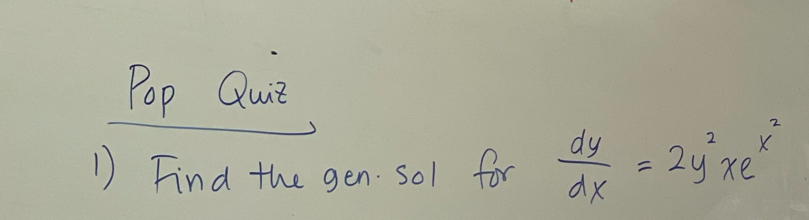 Pop Quiz
1) Find the gen. sol for dy/dx = 2y²xe^x²